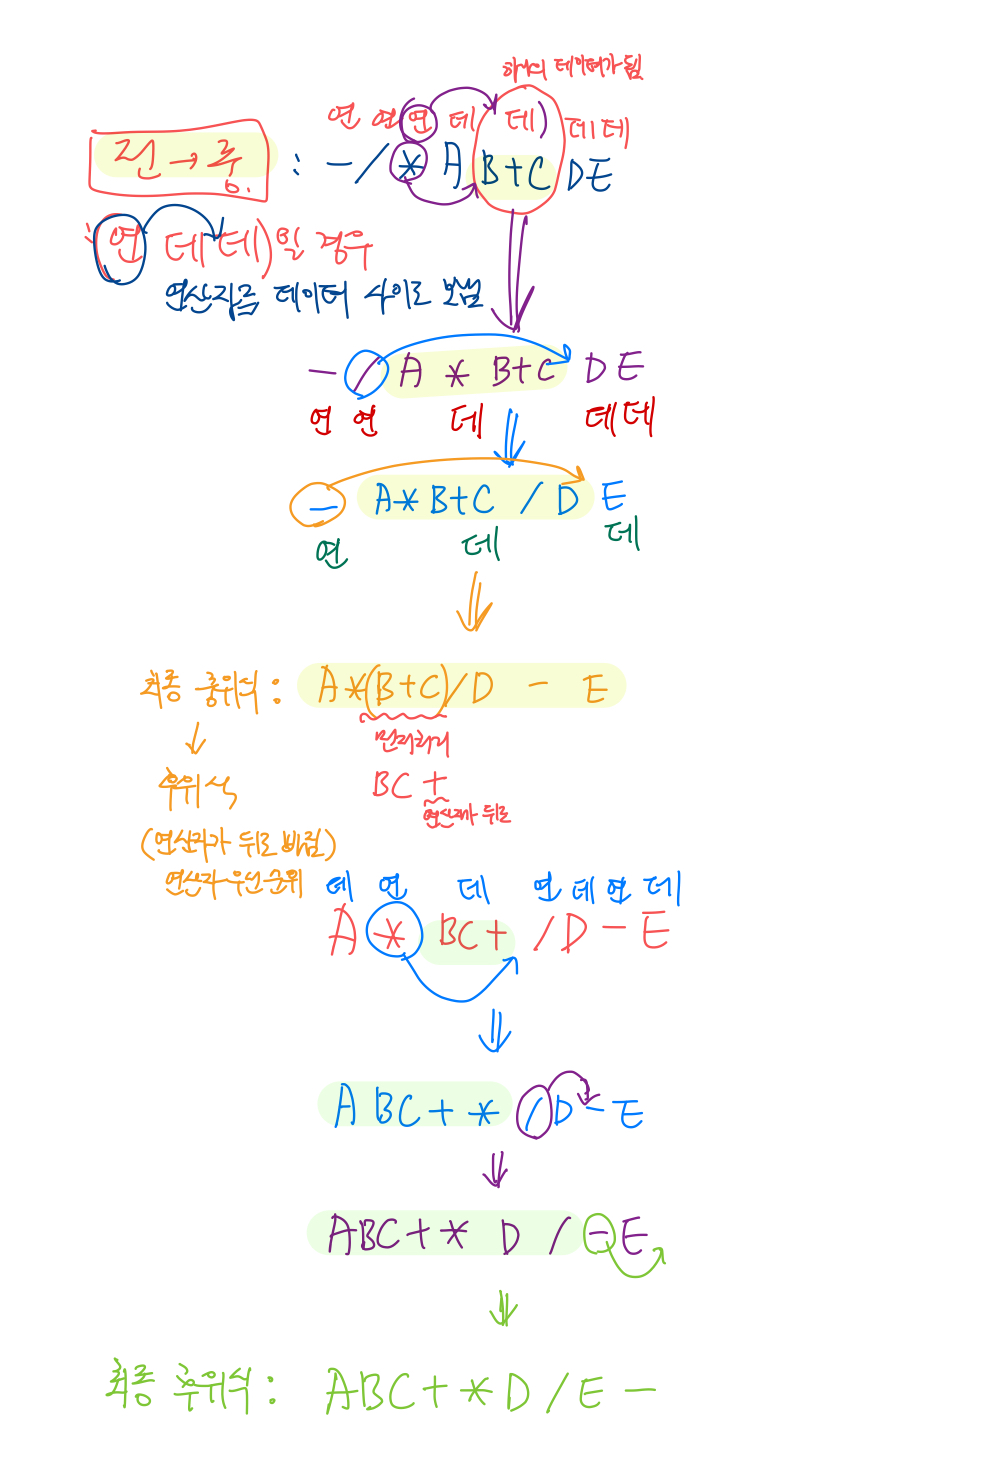 하나의 데이터가 됨
연 연 연 데 데) 데 데
전→중. : - / * A B+C D E
(연 데 데)일 경우
연산자를 데이터 사이로 보냄
- / A * B+C D E
연 연 데 데 데
- A * B+C / D E
연 데 데
최종 중위식 : A*(B+C)/D - E
먼저처리
후위식 BC +
연산자 뒤로
(연산자가 뒤로 빠짐)
연산자 우선순위 데 연 데 연 데 연 데
A * BC+ / D - E
A BC + * / D - E
ABC + * D / - E
최종 후위식 : ABC + * D / E -